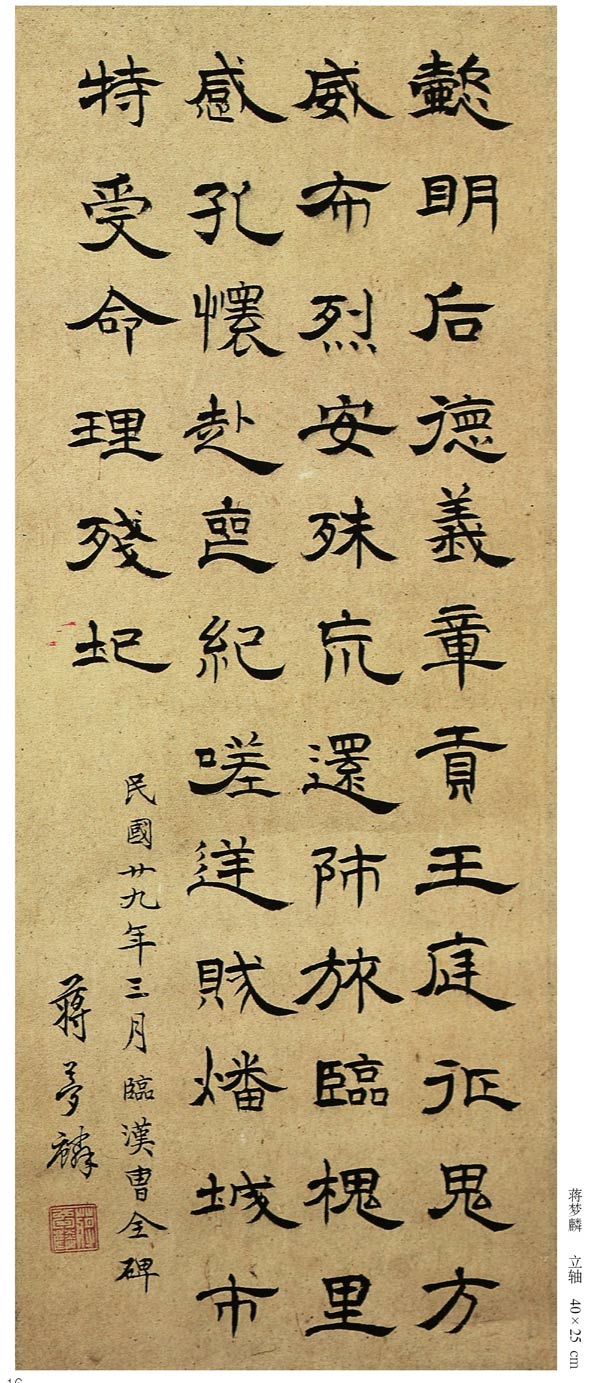 懿明后德義章貢王庭征鬼方
威布烈安殊荒還師旅臨槐里
感孔懷赴喪紀嗟逆賊燔城市
特受命理殘圯
民國廿九年三月臨漢曹全碑
蔣夢麟
蒋梦麟 立轴 40×25 cm
16